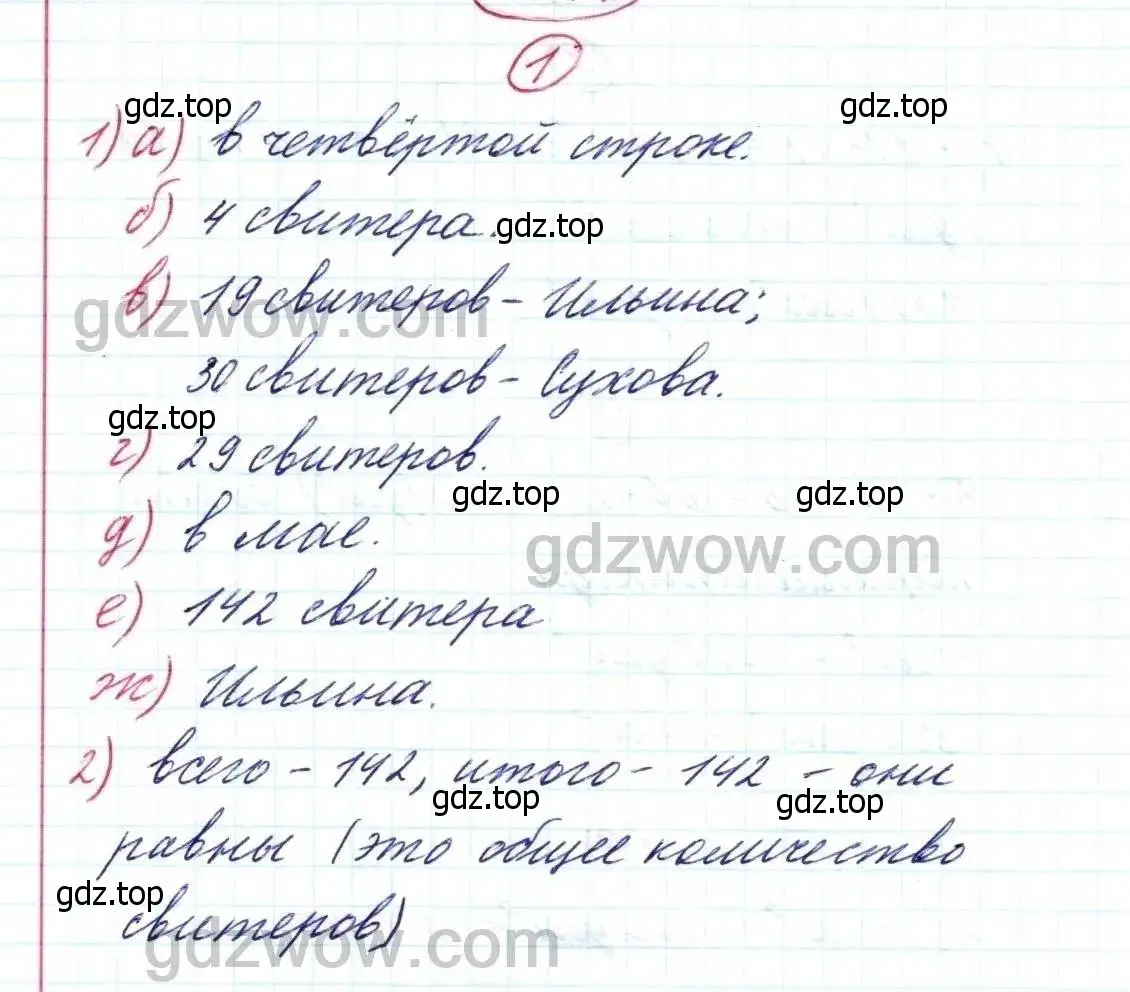 1
gdz.top gdz.top
1) а) в четвёртой строке.
б) 4 свитера. gdz.top
в) 19 свитеров - Ильина;
gdzwow.com
30 свитеров - Сухова.
gdz.top
г) 29 свитеров.
gdz.top gdz.top
д) в мае.
gdzwow.com
е) 142 свитера
ж) Ильина.
2) всего - 142, итого - 142 - они
gdz.top gdz.top
равны (это общее количество
gdz.top
свитеров)
gdzwow.com